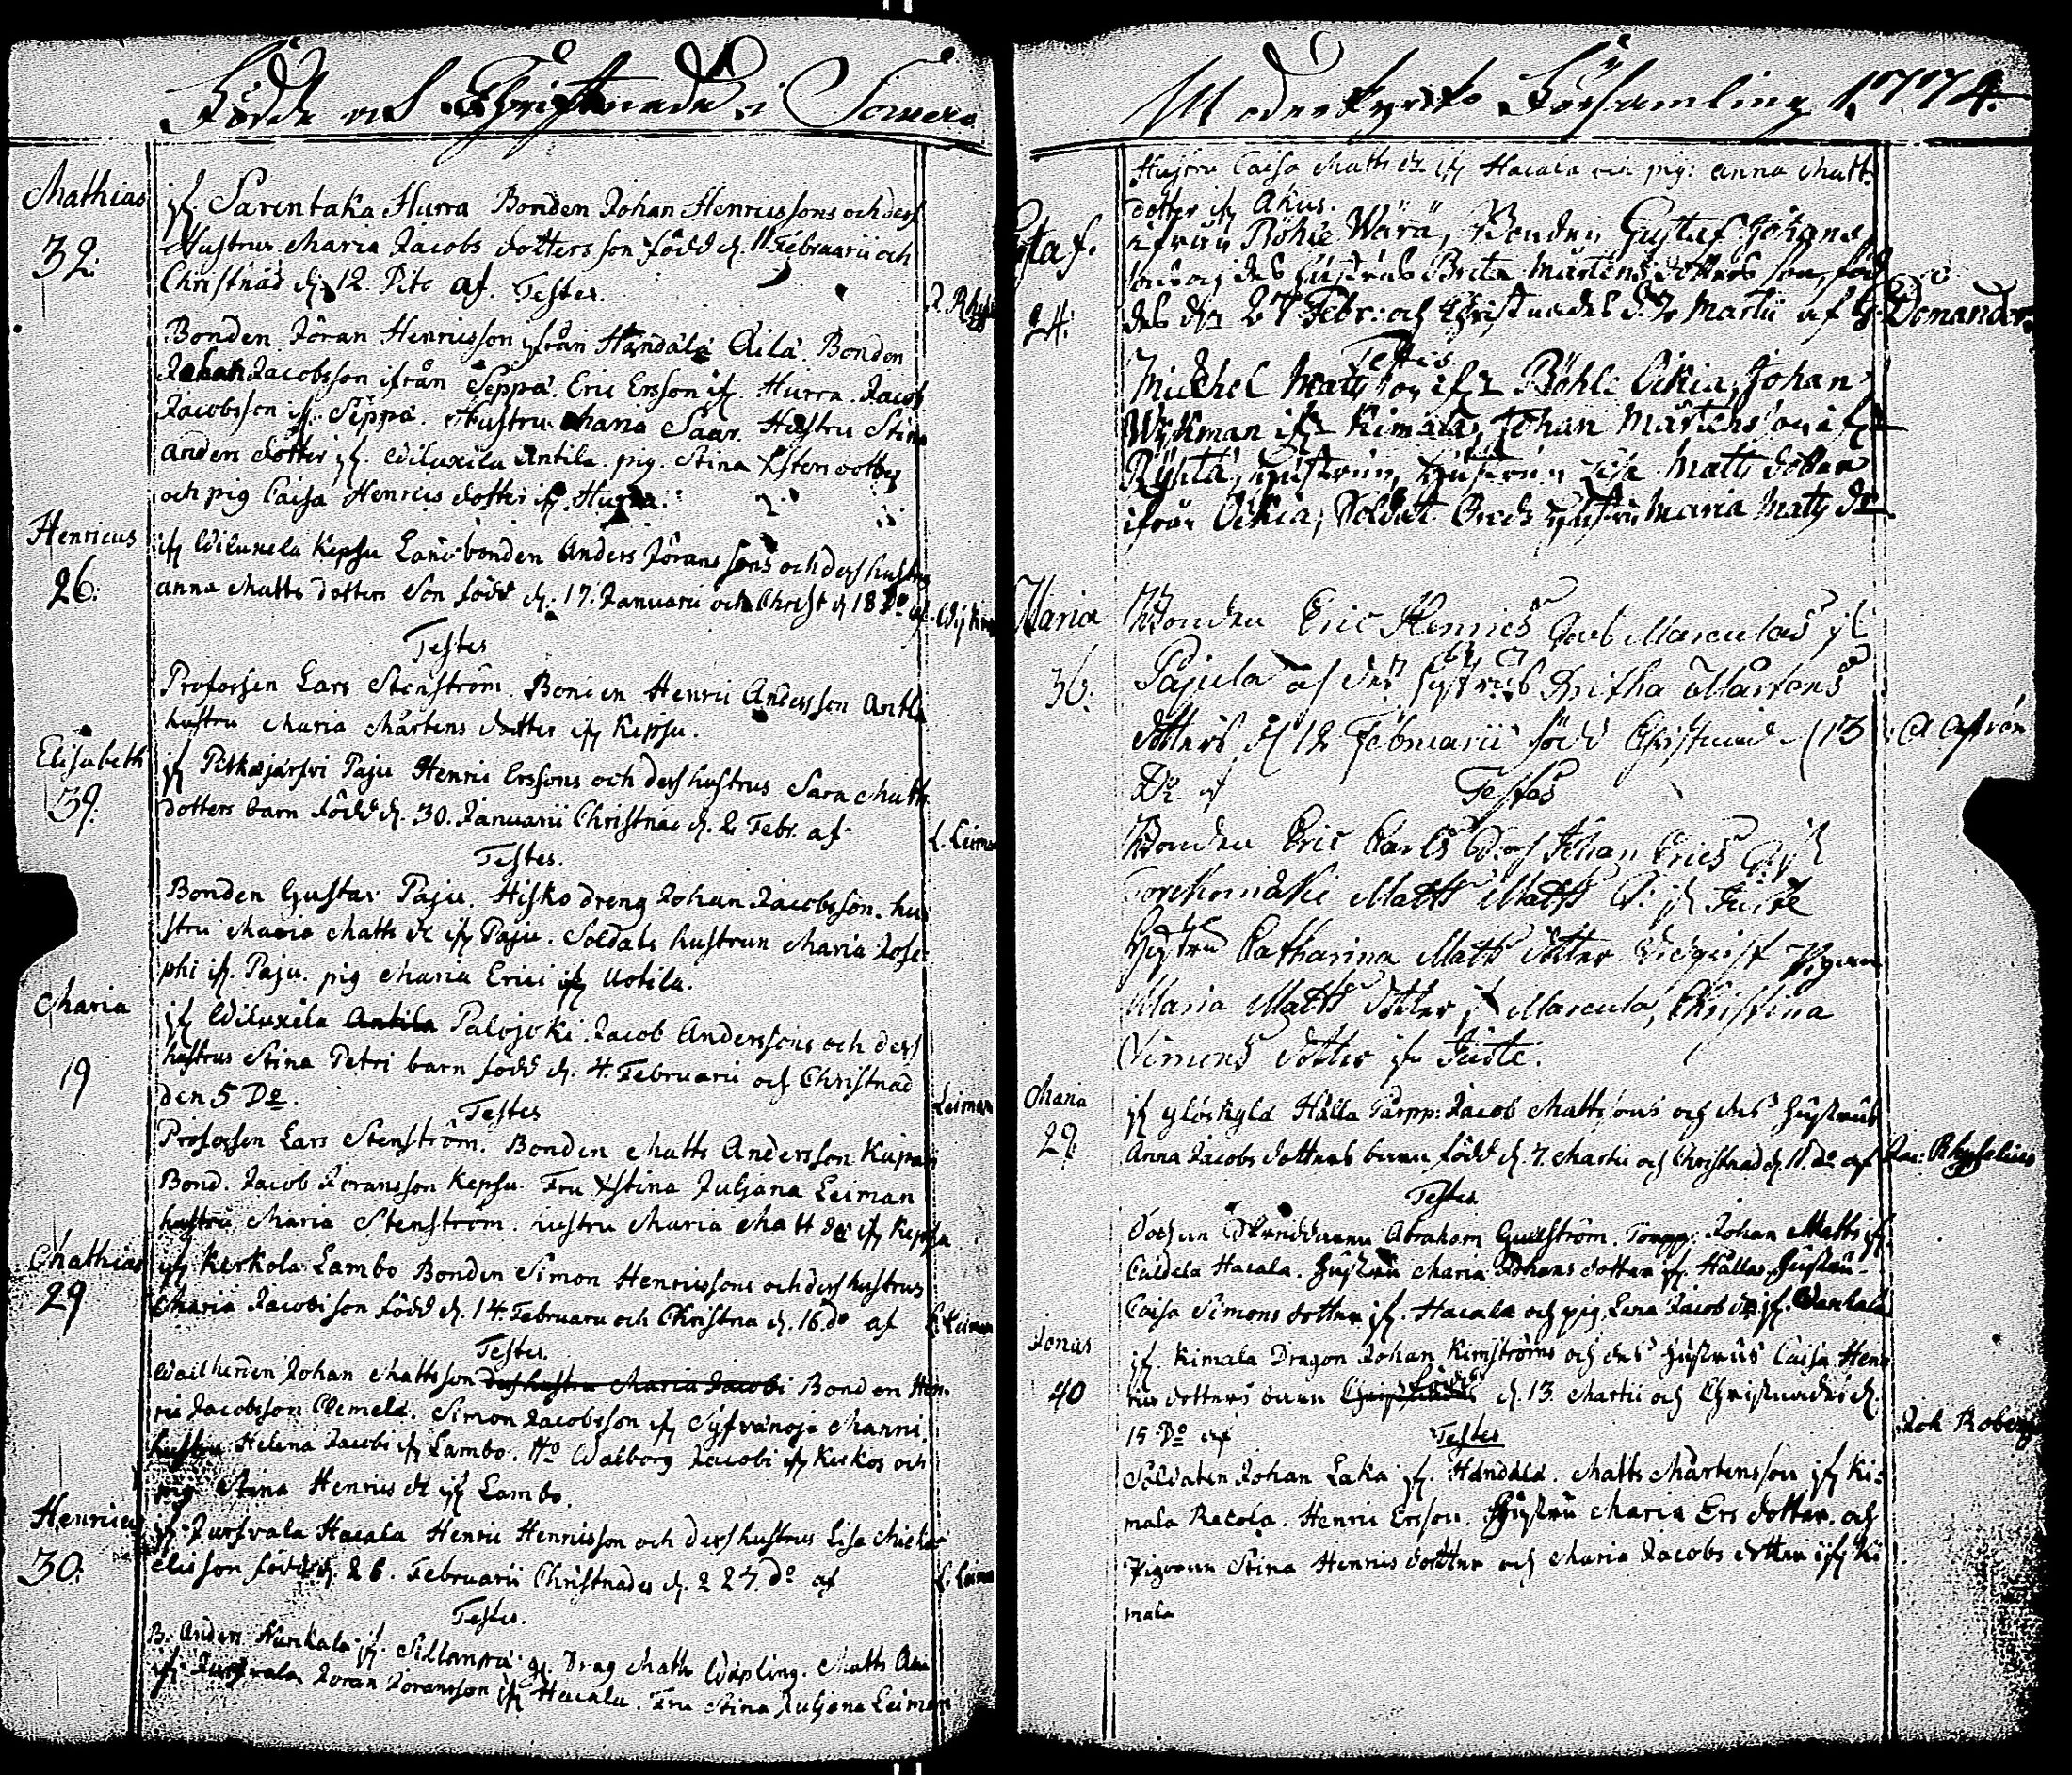 Födde och Christnade i Somero
Mathias
32.
if. Sarentaka Hurra Bonden Johan Henrissons och dess
Hustrus Maria Jacobs dotters son född d. 11 Februarii och
Christnad d. 12. Dito af. Testes.
Bonden Jöran Henrisson ifrån Handala Eila. Bonden
Johan Jacobsson ifrån Seppä. Eric Ersson if. Hurra. Jacob
Jacobsson if. Seppä. Hustru Maria Saar. Hustru Stina
Anders dotter if. Wiluxela Antila. pig. Stina
och pig Caisa Henrics dotter if. Hurra.
Henricus
26.
if Wiluxela Kepsu Landbonden Anders Jörans sons och dess hustru
anna Matts dotters Son född d. 17. Januarii och Christ d 18 Do af
Testes
Profossen Lars Stenström. Bonden Henric Andersson Antla
hustru Maria Mårtens dotter if Kepsu.
Elisabeth
39.
if Pitkäjärfvi Paju Henric Erssons och dess hustrus Sara Matts
dotters barn född d. 30. Januarii Christnad d. 2 Febr. af
L. Leiman
Testes.
Bonden Gustav Paju. Hisko dreng Johan Jacobsson. hu-
stru Maria Matts dr if Paju. Soldats hustrun Maria Jose-
phi if. Paju. pig Maria Erici if Uotila.
Maria
19
if Wiluxela Antila Palojoki. Jacob Anderssons och dess
hustrus Stina Petri barn född d. 4. Februarii och Christnad
den 5 Do.
Leiman
Testes
Profossen Lars Stenström. Bonden Matts Andersson
Bond. Jacob Joransson Kepsu. Fru Xstina Juljana Leiman
hustru Maria Stenström. hustru Maria Matt dr if Kepsu
Mathias
29
if Kerkola Lambo Bonden Simon Henrissons och dess hustrus
Maria Jacobi son född d. 14. Februarii och Christna d. 16. do af
L. Leiman
Testes.
Johan Mattsson dess hustru Maria Jacobi Bonden Hen-
ric Jacobsson Clemela. Simon Jacobsson if Syfvänoja Manni.
hustru Helena Jacobi if Lambo. Ho Walborg Jacobi if Kerkos och
pig Stina Henrics dr if Lambo.
Henricus
30.
if. Jurfvala Hacala Henric Henrisson och dess hustrus Lisa Micka-
elis son född d. 26. Februarii Christnades d. 2 27. do af
L. Leiman
Testes.
B. Anders if. Sillanpä Drag Matts Matts
if. Jurfvala Joran Joransson if Hacala. Fru Stina Juljana Leiman
Moderkyrko Församling 1774.
Hustru Caisa Matts dr. if Hacala och pig: anna Matts
dotter if Akus.
Gustaf.
24.
ifrån Böhle Wärä, Bonden Gustaf Johans
sons och des hustrus Brita Mårtens dotters son, föd
des den 27 Febr: och Christnades d. 2 Martii af G. Domander.
Testes
Michel Matts son ifr Böhle Oikia, Johan
Wykman ifr Kimala, Johan Mårtens son ifr
Ryhtä, Hustrun, Hustrun Lisa Matts dotter
ifrån Oikia, Soldat hustru Maria Mats dr
Maria
36.
Bonden Eric Henrics Marculas if
Pajula och des hustrus Britha Mårtens
dotters d 12 Februarii född Christnad d 13
Do af
Testes
Bonden Eric Carls Johan Erics
Matts Matts if
hustru Catharina Matts dotter pigan
Maria Matts dotter if Marcula, Christina
Simons dotter if
Maria
29.
if Ylöskylä Hälla Tårpp: Jacob Mattssons och des hustrus
Anna Jacobs dotters barn född d. 7. Martii och Christnad d 11. do af Jac: Rhyselius
Testes.
Abraham Tårpp. Johan Matts if
Hacala. Hustru Maria Johans dotter if. Hällas Hustru
Caisa Simons dotter if. Hacala och pig. Lena Jacobs dr if.
Jonas
40
if. Kimala Dragon Johan Kimströms och des hustrus Caisa Hen-
rics dotters barn född d. 13. Martii och Christnades d.
15 Do af
Joh Roberg
Testes
Soldaten Johan Laka if. Handala. Matts Mårtensson if Ki-
mala Racola. Henric Ersson. Hustru Maria Ers dotter. och
Pigorna Stina Henrics dotter och Maria Jacobs dotter if Ki
mala